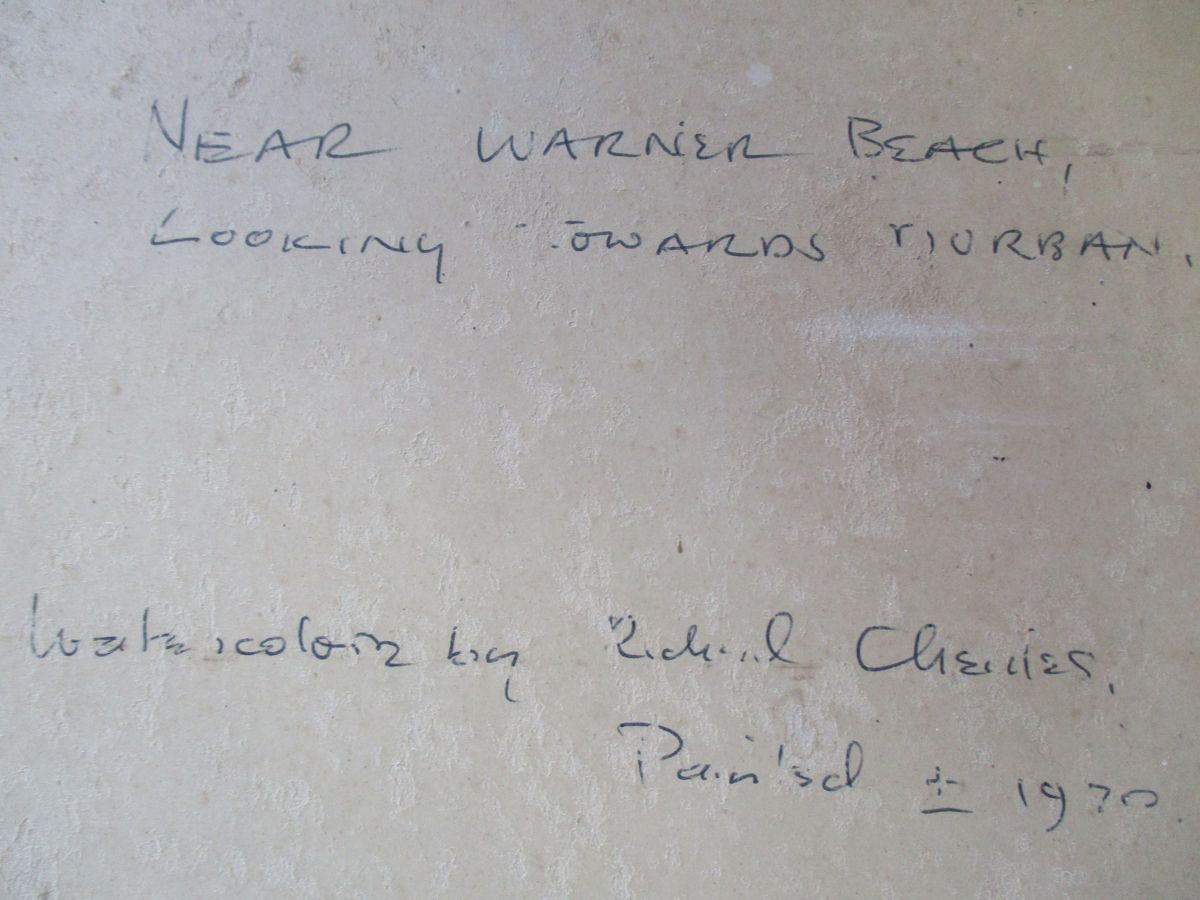 NEAR WARNER BEACH,
LOOKING TOWARDS DURBAN.
Watercolour by Richard
Painted ± 1970